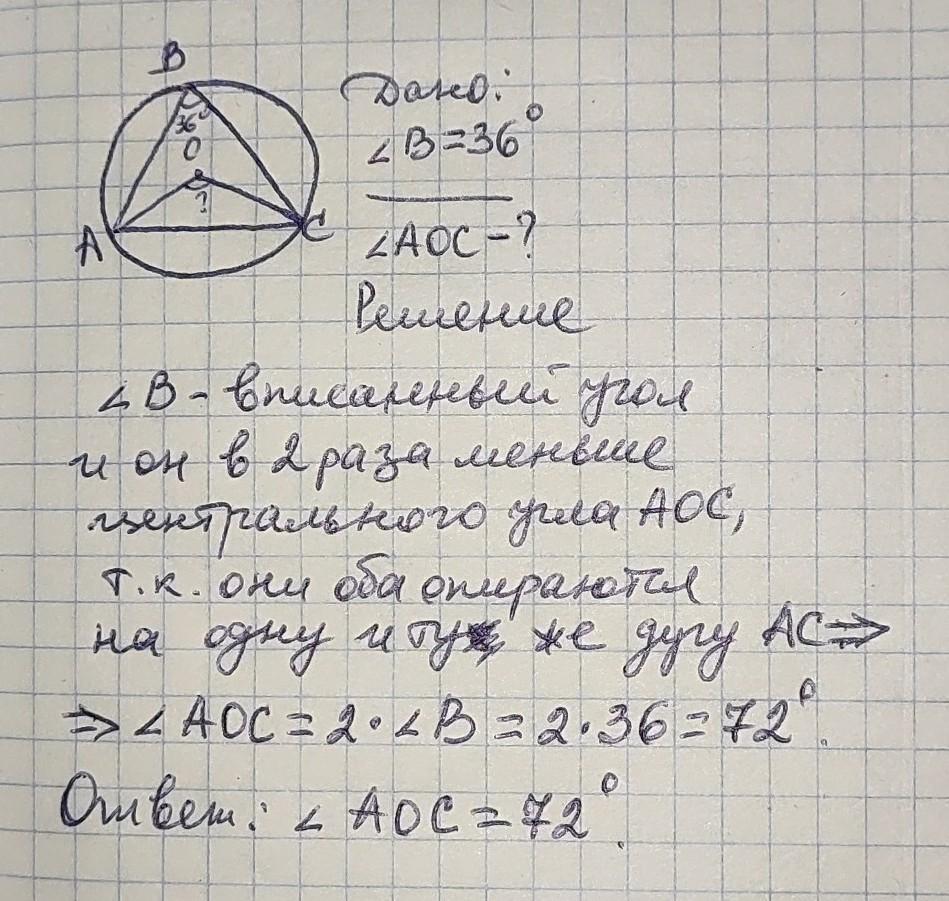 B
36°
O
?
A
C
Дано:
∠B=36°
∠AOC-?
Решение
∠B - вписанный угол
и он в 2 раза меньше
центрального угла AOC,
т.к. они оба опираются
на одну и ту же дугу AC⇒
⇒ ∠AOC = 2·∠B = 2·36 = 72°.
Ответ: ∠AOC = 72°.